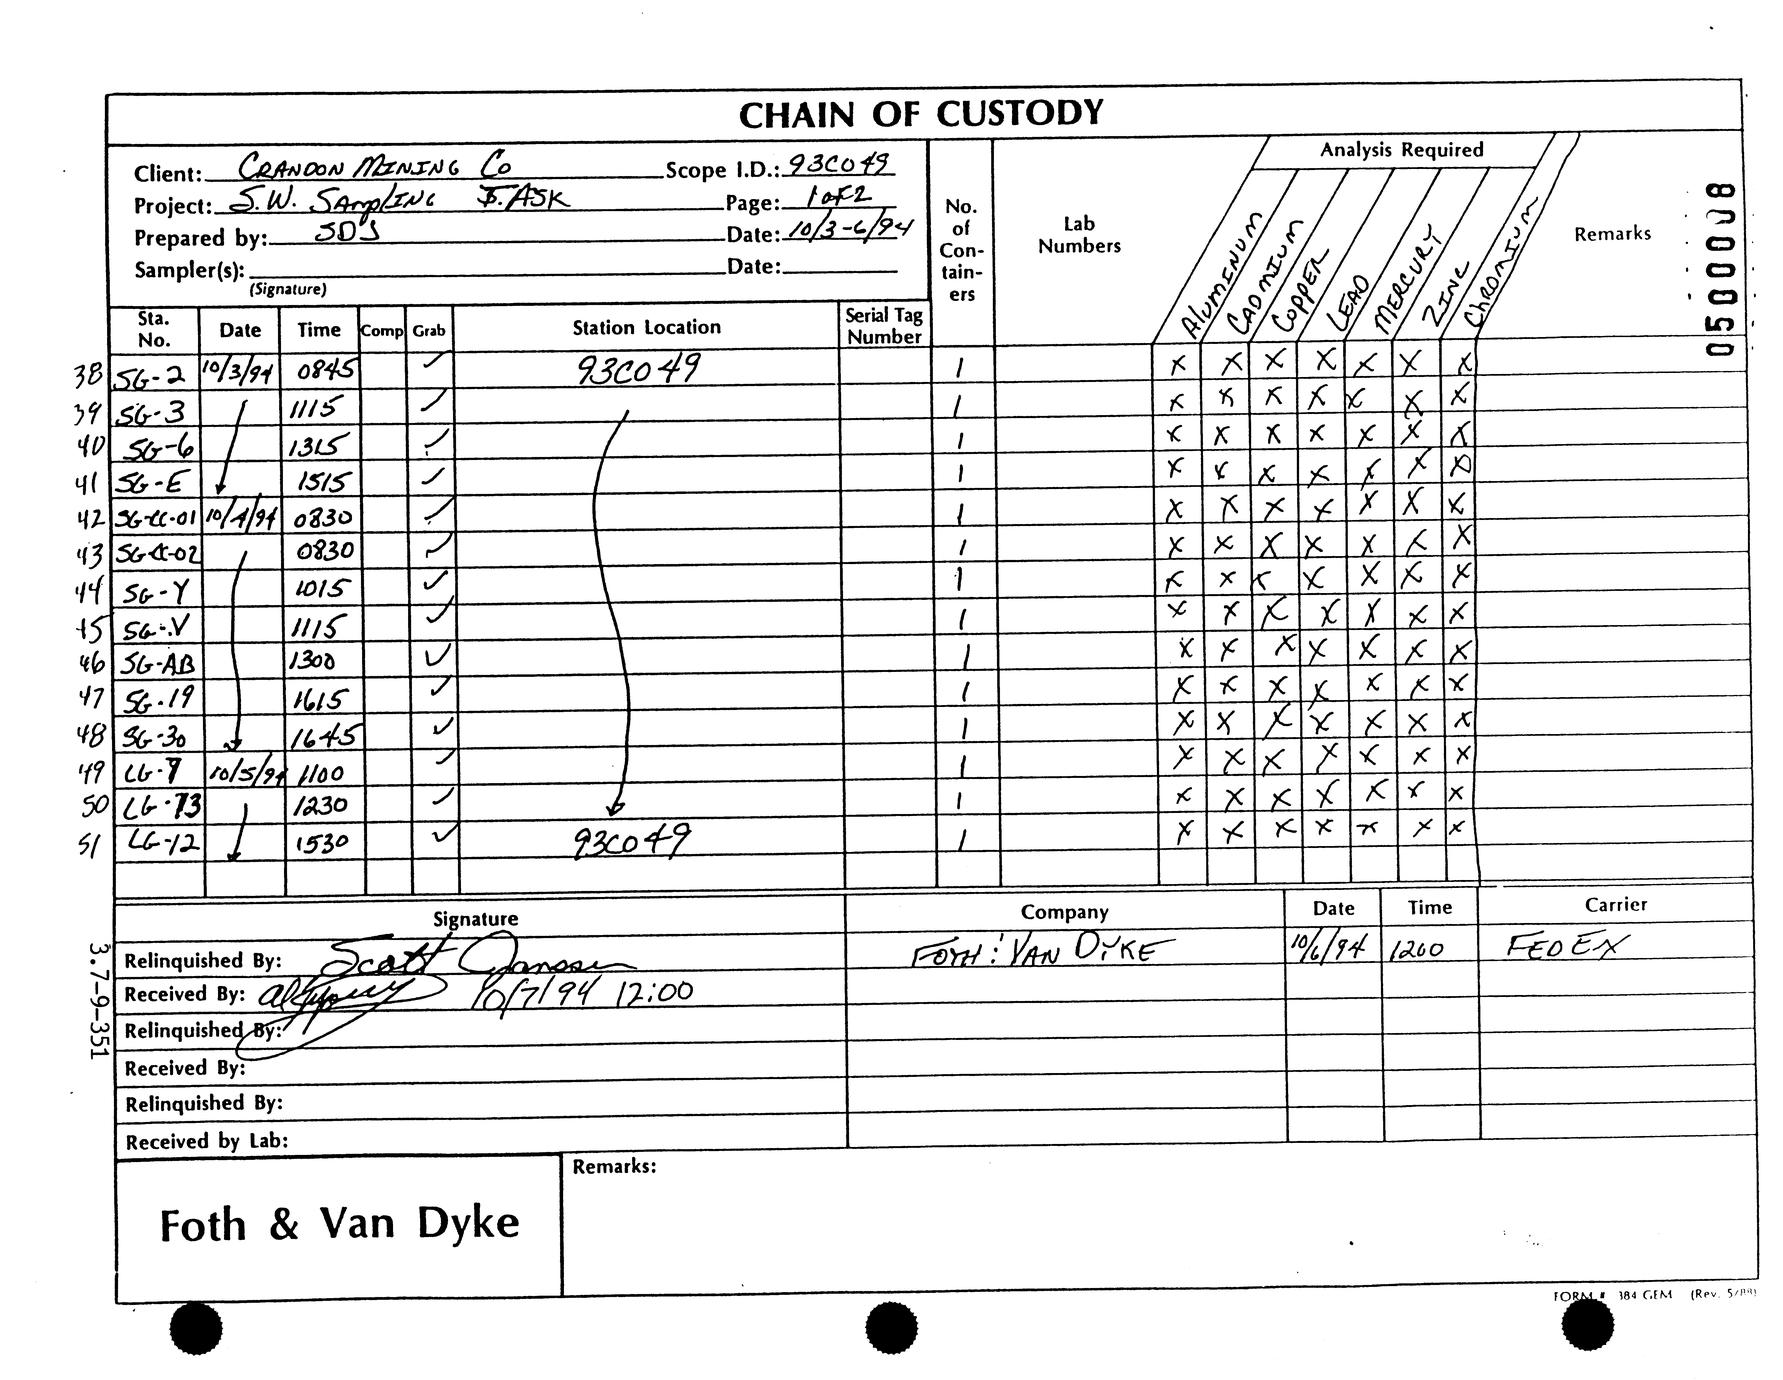 CHAIN OF CUSTODY
Client: CRANDON MINING Co Scope I.D.: 93C049
Project: S.W. SAMPLING Page: 1 of 2
Prepared by: SDJ Date: 10/3-6/94
Sampler(s): Date:
(Signature)
No. of Con- tain- ers
Lab Numbers
Analysis Required
Aluminum CADMIUM COPPER LEAD MERCURY ZINC CHROMIUM
Remarks
0500008
Sta. No. Date Time Comp Grab Station Location Serial Tag Number
38 SG-2 10/3/94 0845 ✓ 93C049 1 X X X X X X X
39 SG-3 1115 ✓ 1 X X X X X X X
40 SG-6 1315 ✓ 1 X X X X X X X
41 SG-E 1515 ✓ 1 X X X X X X X
42 SG-CC-01 10/4/94 0830 ✓ 1 X X X X X X X
43 SG-CC-02 0830 ✓ 1 X X X X X X X
44 SG-Y 1015 ✓ 1 X X X X X X X
45 SG-V 1115 ✓ 1 X X X X X X X
46 SG-AB 1300 ✓ 1 X X X X X X X
47 SG-19 1615 ✓ 1 X X X X X X X
48 SG-30 1645 ✓ 1 X X X X X X X
49 LG-7 10/5/94 1100 ✓ 1 X X X X X X X
50 LG-13 1230 ✓ 1 X X X X X X X
51 LG-12 1530 ✓ 93C049 1 X X X X X X X
Signature Company Date Time Carrier
Relinquished By: Scott Janssen FOTH & VAN DYKE 10/6/94 1200 FED EX
Received By: 10/7/94 12:00
Relinquished By:
Received By:
Relinquished By:
Received by Lab:
3.7-9-351
Foth & Van Dyke
Remarks:
FORM # 384 GEM (Rev. 5/88)